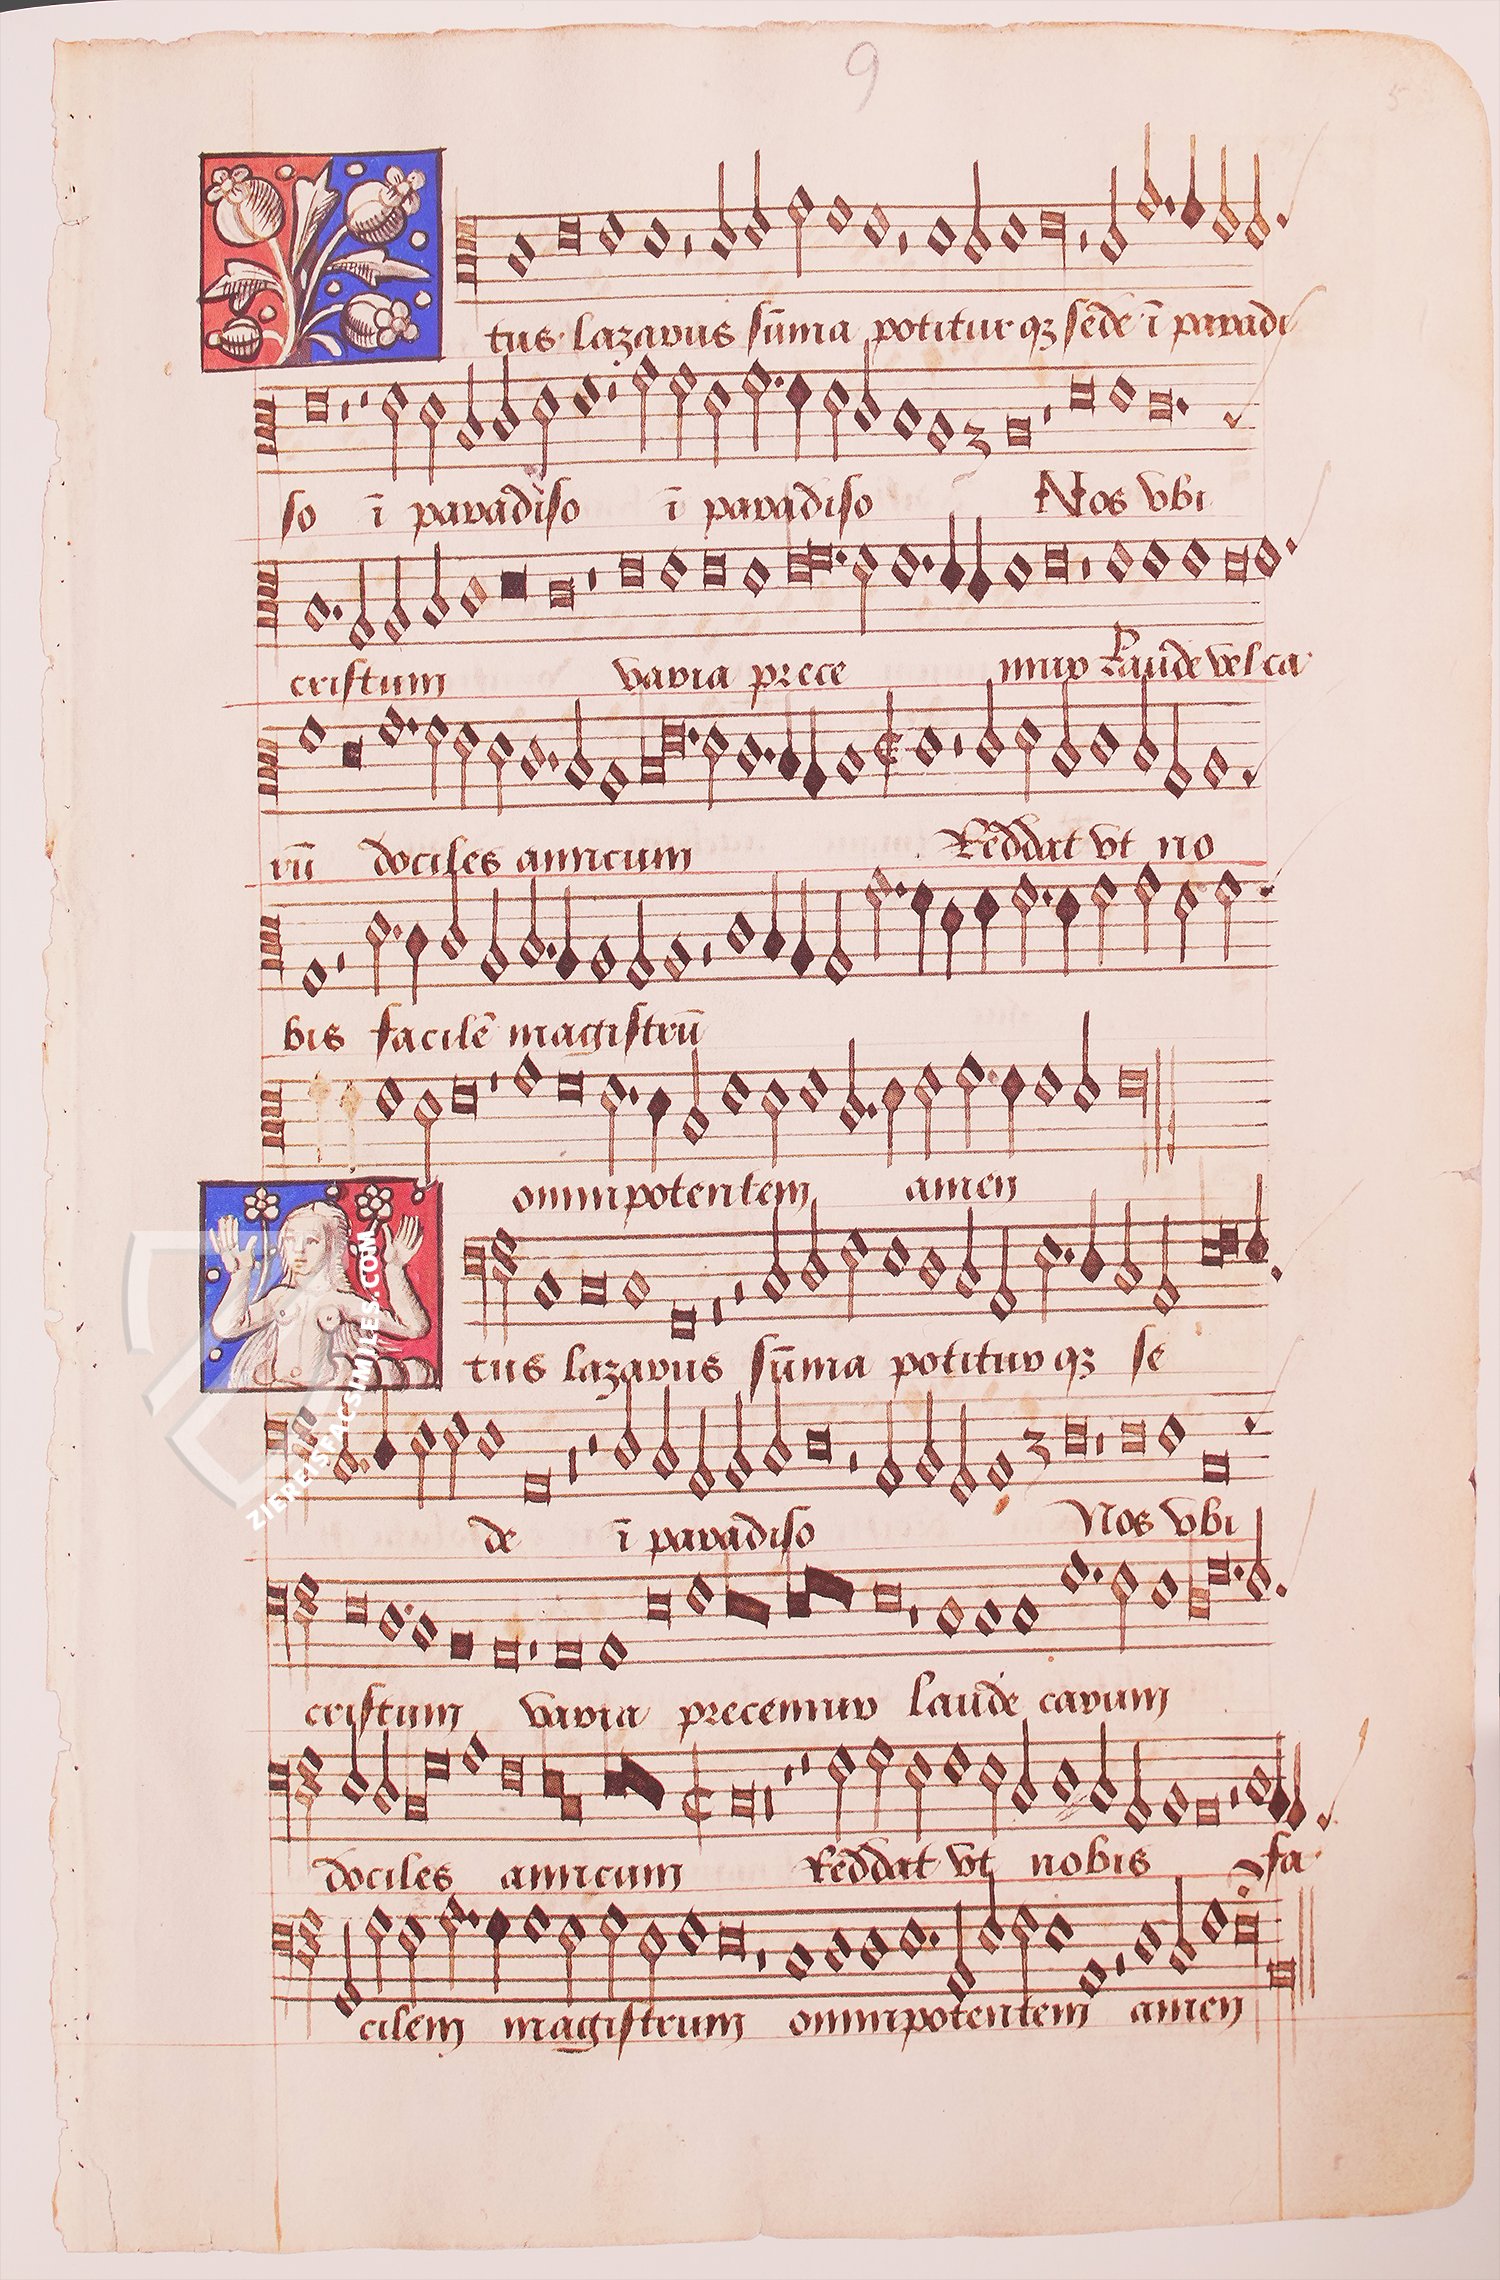 9
5
tus lazarus sūma potitur qȝ sēde ī paradi
so ī paradiso ī paradiso Nos vbi
cristum varia prece mur Laude vel ca
rū dociles amicum Reddat vt no
bis facilē magistrū
omnipotentem amen
tus lazarus sūma potitur qȝ se
de ī paradiso Nos vbi
cristum varia precemur laude carum
dociles amicum Reddat vt nobis fa
cilem magistrum omnipotentem amen
ZIEREISFACSIMILES.COM